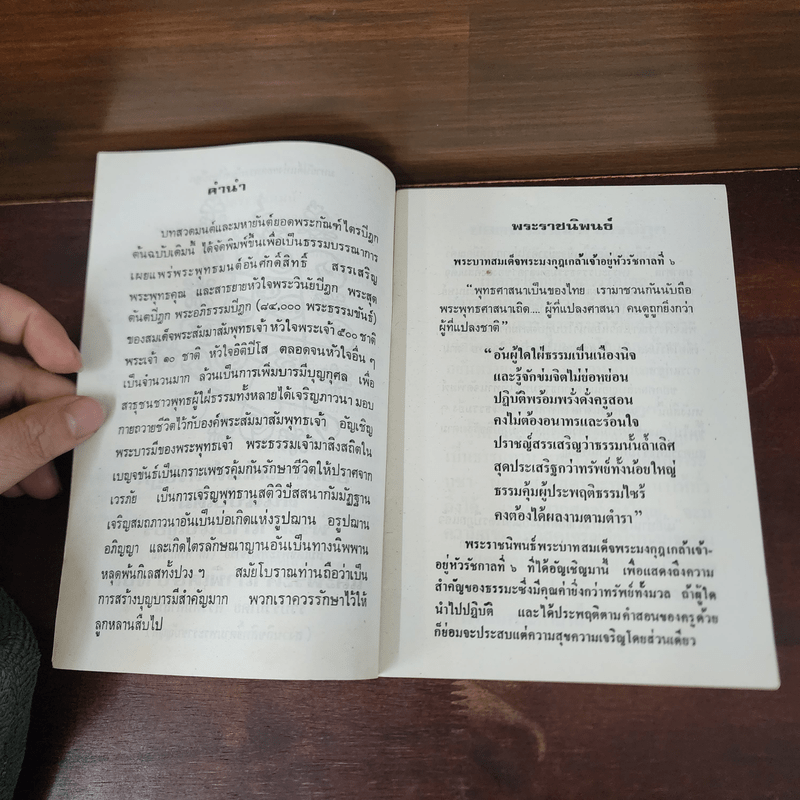 คำนำ
บทสวดมนต์และมหายันต์ยอดพระกัณฑ์ไตรปิฎก
ต้นฉบับเดิมนี้ ได้จัดพิมพ์ขึ้นเพื่อเป็นธรรมบรรณาการ
เผยแพร่พระพุทธมนต์อันศักดิ์สิทธิ์ สรรเสริญ
พระพุทธคุณ และสาธยายหัวใจพระวินัยปิฎก พระสุต
ตันตปิฎก พระอภิธรรมปิฎก (๘๔,๐๐๐ พระธรรมขันธ์)
ของสมเด็จพระสัมมาสัมพุทธเจ้า หัวใจพระเจ้า ๕๐๐ ชาติ
พระเจ้า ๑๐ ชาติ หัวใจอิติปิโส ตลอดจนหัวใจอื่น ๆ
เป็นจำนวนมาก ล้วนเป็นการเพิ่มบารมีบุญกุศล เพื่อ
สาธุชนชาวพุทธผู้ใฝ่ธรรมทั้งหลายได้เจริญภาวนา มอบ
กายถวายชีวิตไว้กับองค์พระสัมมาสัมพุทธเจ้า อัญเชิญ
พระบารมีของพระพุทธเจ้า พระธรรมเจ้ามาสิงสถิตใน
เบญจขันธ์เป็นเกราะเพชรคุ้มกันรักษาชีวิตให้ปราศจาก
เวรภัย เป็นการเจริญพุทธานุสติวิปัสสนากัมมัฏฐาน
เจริญสมถภาวนาอันเป็นบ่อเกิดแห่งรูปฌาน อรูปฌาน
อภิญญา และเกิดไตรลักษณาญานอันเป็นทางนิพพาน
หลุดพ้นกิเลสทั้งปวง ๆ สมัยโบราณท่านถือว่าเป็น
การสร้างบุญบารมีสำคัญมาก พวกเราควรรักษาไว้ให้
ลูกหลานสืบไป
พระราชนิพนธ์
พระบาทสมเด็จพระมงกุฎเกล้าเจ้าอยู่หัวรัชกาลที่ ๖
“พุทธศาสนาเป็นของไทย เรามาชวนกันนับถือ
พระพุทธศาสนาเถิด.... ผู้ที่แปลงศาสนา คนดูถูกยิ่งกว่า
ผู้ที่แปลงชาติ”
“อันผู้ใดใฝ่ธรรมเป็นเนืองนิจ
และรู้จักข่มจิตไม่ย่อหย่อน
ปฏิบัติพร้อมพรั่งดั่งครูสอน
คงไม่ต้องอนาทรและร้อนใจ
ปราชญ์สรรเสริญว่าธรรมนั้นล้ำเลิศ
สุดประเสริฐกว่าทรัพย์ทั้งน้อยใหญ่
ธรรมคุ้มผู้ประพฤติธรรมไซร้
คงต้องได้ผลงามตามตำรา”
พระราชนิพนธ์พระบาทสมเด็จพระมงกุฎเกล้าเจ้า-
อยู่หัวรัชกาลที่ ๖ ที่ได้อัญเชิญมานี้ เพื่อแสดงถึงความ
สำคัญของธรรมะซึ่งมีคุณค่ายิ่งกว่าทรัพย์ทั้งมวล ถ้าผู้ใด
นำไปปฏิบัติ และได้ประพฤติตามคำสอนของครูด้วย
ก็ย่อมจะประสบแต่ความสุขความเจริญโดยส่วนเดียว